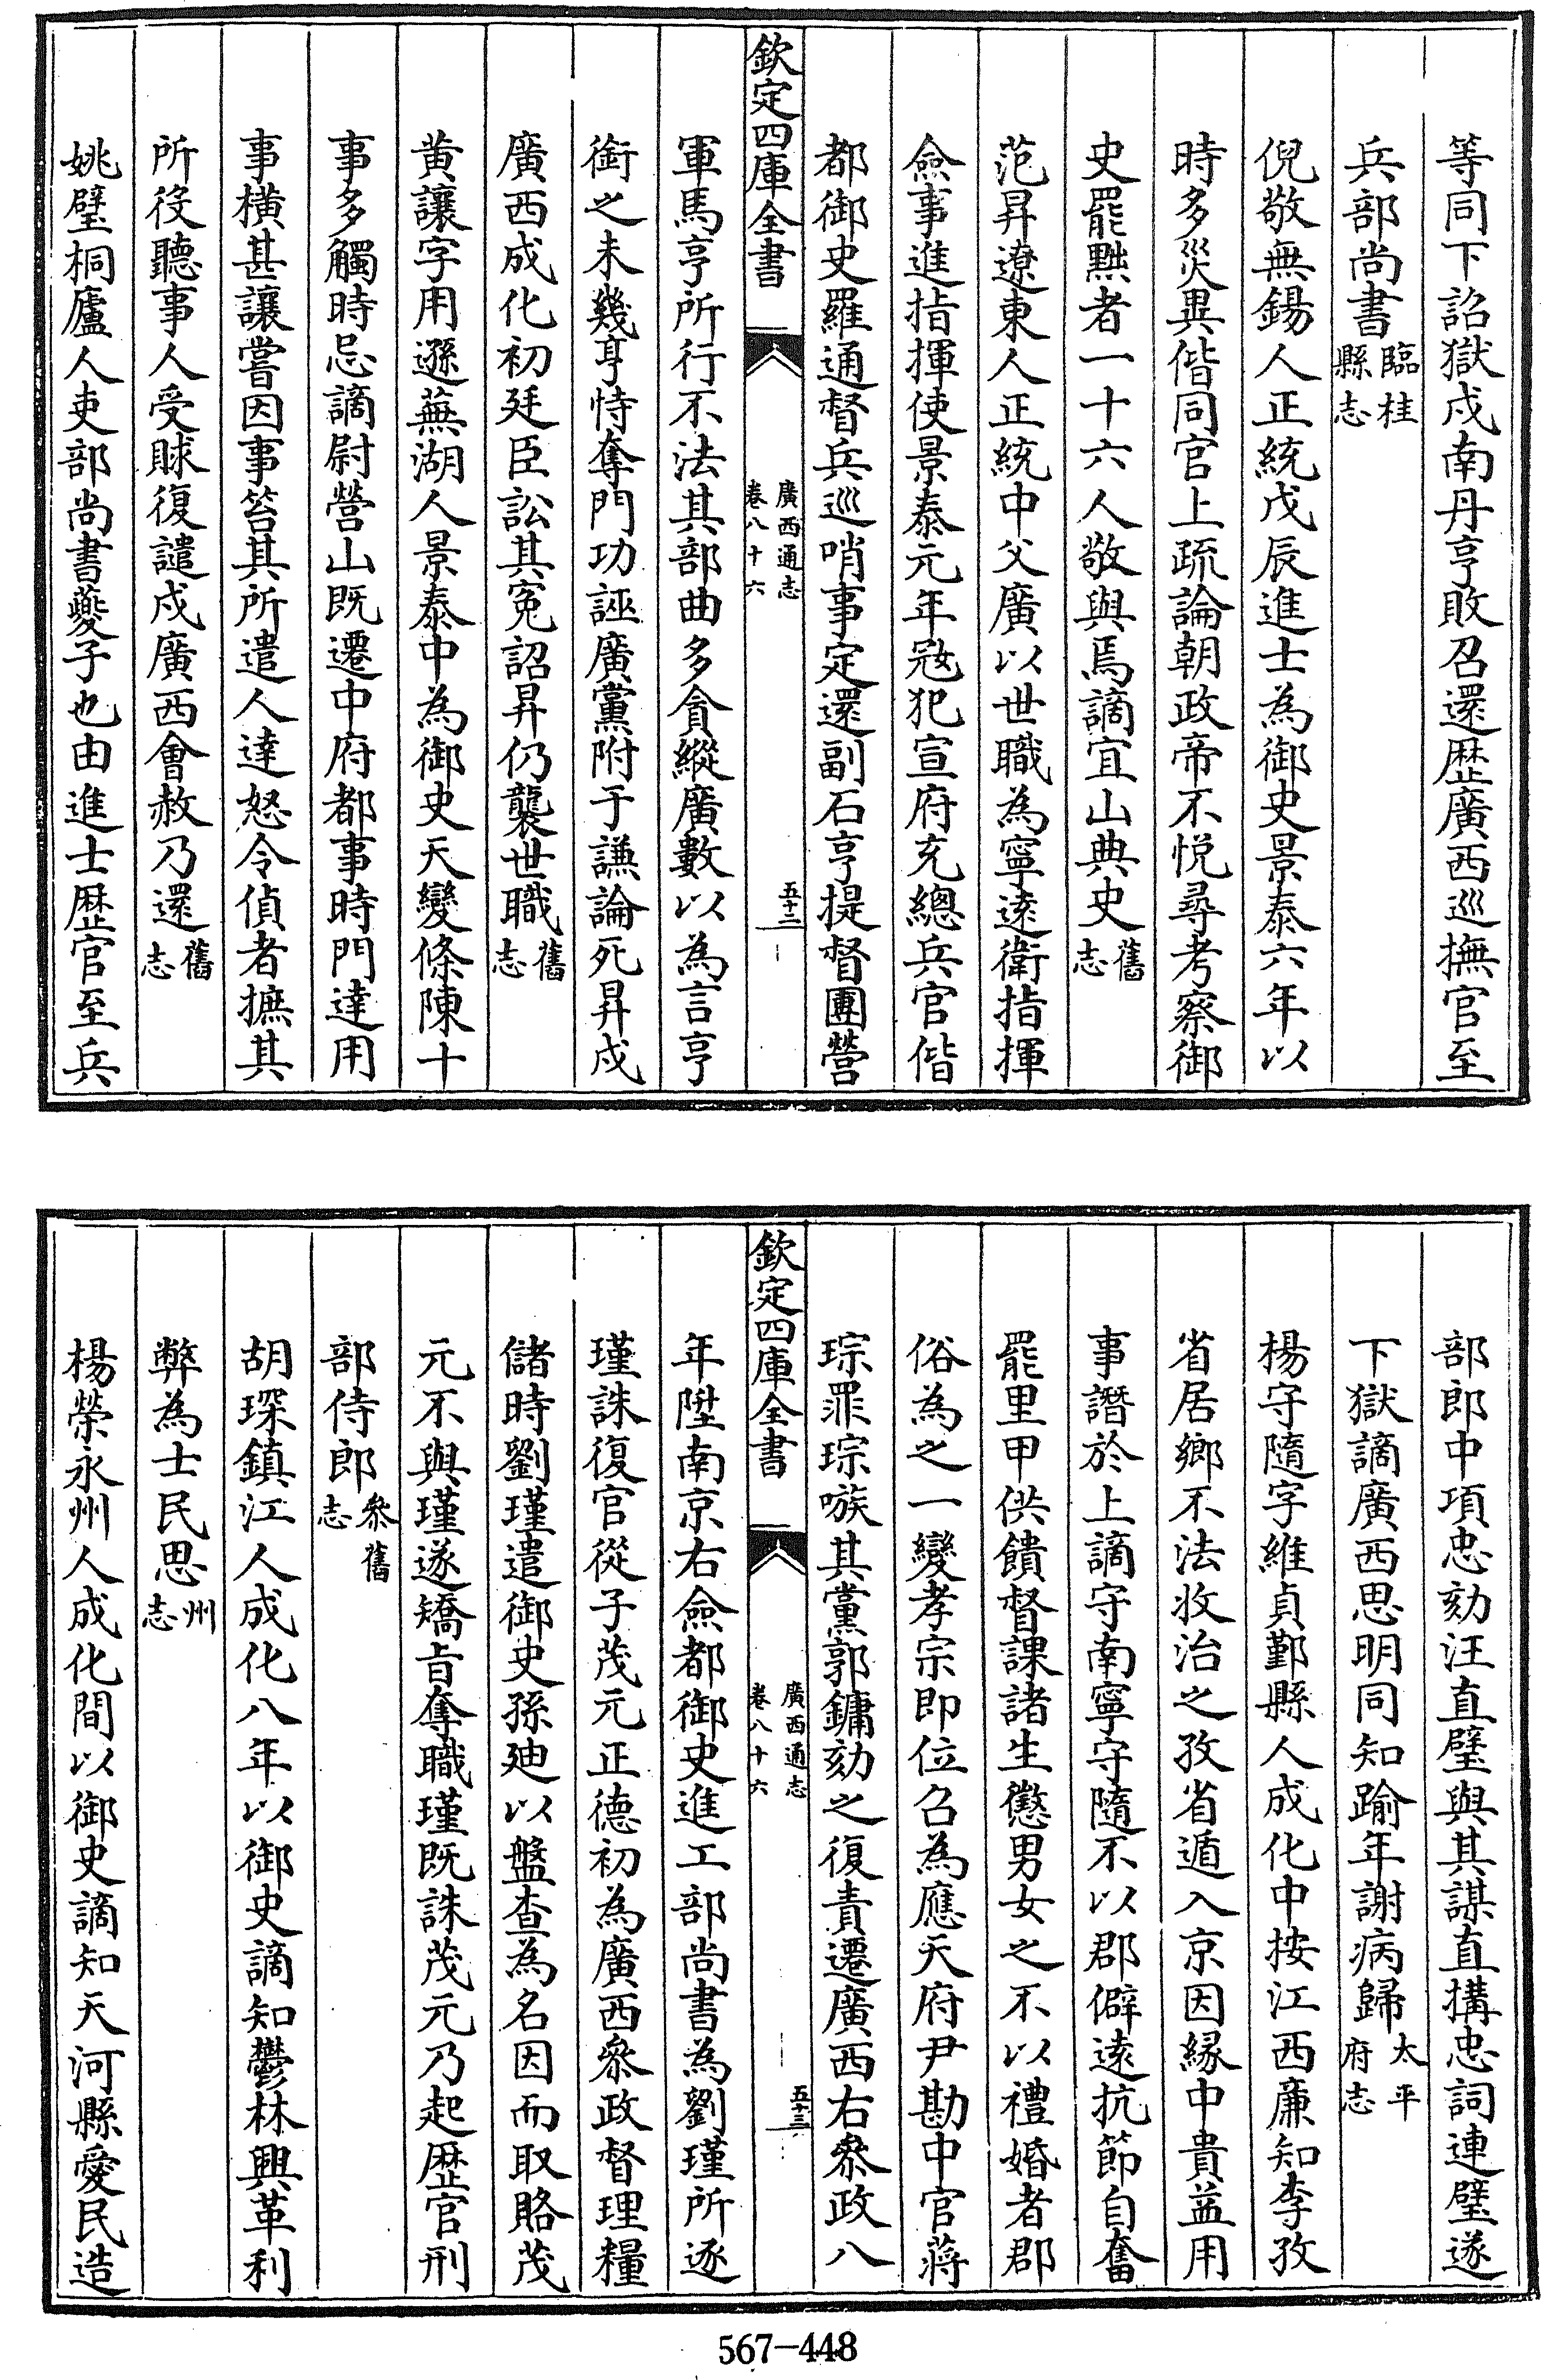 等同下詔獄戍南丹亨敗召還歴廣西巡撫官至
兵部尚書臨桂縣志
倪敬無錫人正統戊辰進士為御史景泰六年以
時多災異偕同官上疏論朝政帝不悅尋考察御
史罷黜者一十六人敬與焉謫宜山典史舊志
范昇遼東人正統中父廣以世職為寧遠衛指揮
僉事進指揮使景泰元年宼犯宣府充總兵官偕
都御史羅通督兵巡哨事定還副石亨提督團營
欽定四庫全書
廣西通志
卷八十六
五十二
軍馬亨所行不法其部曲多貪縱廣數以為言亨
銜之未幾亨恃奪門功誣廣黨附于謙論死昇戍
廣西成化初廷臣訟其寃詔昇仍襲世職舊志
黄讓字用遜蕪湖人景泰中為御史天變條陳十
事多觸時忌謫尉營山既遷中府都事時門達用
事橫甚讓嘗因事笞其所遣人達怒令偵者摭其
所役聽事人受賕復譴戍廣西會赦乃還舊志
姚璧桐廬人吏部尚書夔子也由進士歴官至兵
部郎中項忠劾汪直璧與其謀直搆忠詞連璧遂
下獄謫廣西思明同知踰年謝病歸太平府志
楊守隨字維貞鄞縣人成化中按江西廉知李孜
省居鄉不法收治之孜省遁入京因緣中貴益用
事譖於上謫守南寧守隨不以郡僻遠抗節自奮
罷里甲供饋督課諸生懲男女之不以禮婚者郡
俗為之一變孝宗即位召為應天府尹勘中官蔣
琮罪琮嗾其黨郭鏞劾之復責遷廣西右叅政八
欽定四庫全書
廣西通志
卷八十六
五十三
年陞南京右僉都御史進工部尚書為劉瑾所逐
瑾誅復官從子茂元正德初為廣西叅政督理糧
儲時劉瑾遣御史孫廸以盤查為名因而取賂茂
元不與瑾遂矯旨奪職瑾既誅茂元乃起歴官刑
部侍郎叅舊志
胡琛鎮江人成化八年以御史謫知鬱林興革利
弊為士民思州志
楊榮永州人成化間以御史謫知天河縣愛民造
567-448